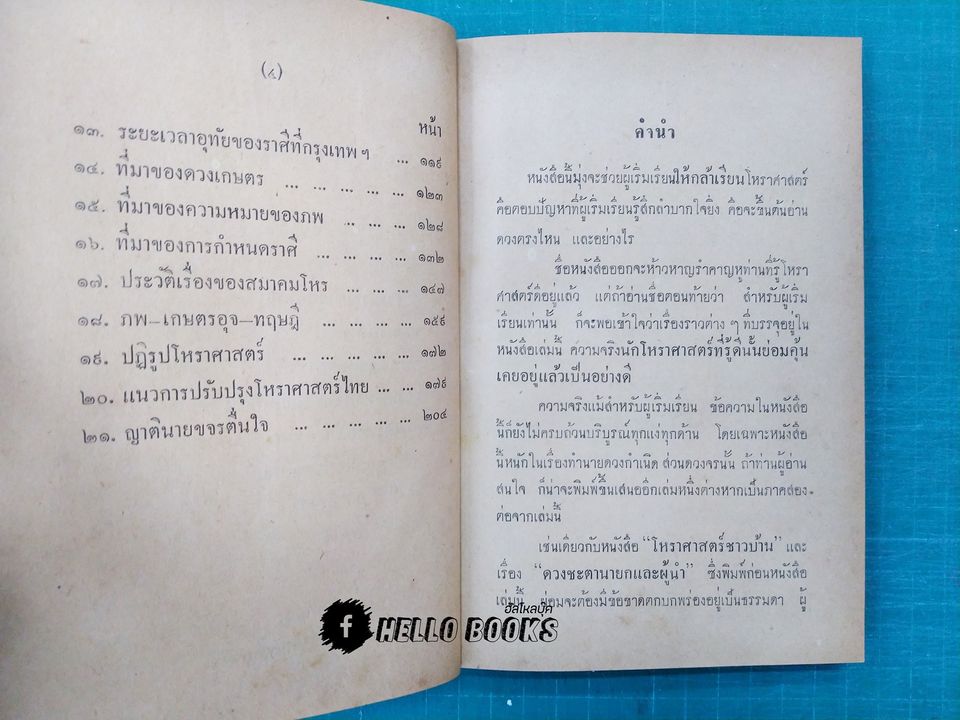 (๔)
หน้า
๑๓. ระยะเวลาอุทัยของราศีที่กรุงเทพ ฯ ... ๑๑๙
๑๔. ที่มาของดวงเกษตร ... ... ... ... ... ๑๒๓
๑๕. ที่มาของความหมายของภพ ... ... ... ๑๒๘
๑๖. ที่มาของการกำหนดราศี ... ... ... ... ๑๓๒
๑๗. ประวัติเรื่องของสมาคมโหร ... ... ... ๑๔๗
๑๘. ภพ–เกษตรอุจ–ทฤษฎี ... ... ... ... ๑๕๙
๑๙. ปฏิรูปโหราศาสตร์ ... ... ... ... ... ๑๗๒
๒๐. แนวการปรับปรุงโหราศาสตร์ไทย ... ... ๑๗๙
๒๑. ญาตินายขจรตื่นใจ ... ... ... ... ... ๒๐๔
คำนำ
หนังสือนี้มุ่งจะช่วยผู้เริ่มเรียนให้กล้าเรียนโหราศาสตร์
คือตอบปัญหาที่ผู้เริ่มเรียนรู้สึกลำบากใจยิ่ง คือจะขึ้นต้นอ่าน
ดวงตรงไหน และอย่างไร
ชื่อหนังสือออกจะห้าวหาญรำคาญหูท่านที่รู้โหรา
ศาสตร์ดีอยู่แล้ว แต่ถ้าอ่านชื่อตอนท้ายว่า สำหรับผู้เริ่ม
เรียนเท่านั้น ก็จะพอเข้าใจว่าเรื่องราวต่าง ๆ ที่บรรจุอยู่ใน
หนังสือเล่มนี้ ความจริงนักโหราศาสตร์ที่รู้ดีนั้นย่อมคุ้น
เคยอยู่แล้วเป็นอย่างดี
ความจริงแม้สำหรับผู้เริ่มเรียน ข้อความในหนังสือ
นี้ก็ยังไม่ครบถ้วนบริบูรณ์ทุกแง่ทุกด้าน โดยเฉพาะหนังสือ
นี้หนักในเรื่องทำนายดวงกำเนิด ส่วนดวงจรนั้น ถ้าท่านผู้อ่าน
สนใจ ก็น่าจะพิมพ์ขึ้นเสนออีกเล่มหนึ่งต่างหากเป็นภาคสอง
ต่อจากเล่มนี้
เช่นเดียวกับหนังสือ "โหราศาสตร์ชาวบ้าน" และ
เรื่อง "ดวงชะตานายกและผู้นำ" ซึ่งพิมพ์ก่อนหนังสือ
เล่มนี้ ย่อมจะต้องมีข้อขาดตกบกพร่องอยู่เป็นธรรมดา ผู้
ฮัลโหลบุ๊ค
f HELLO BOOKS